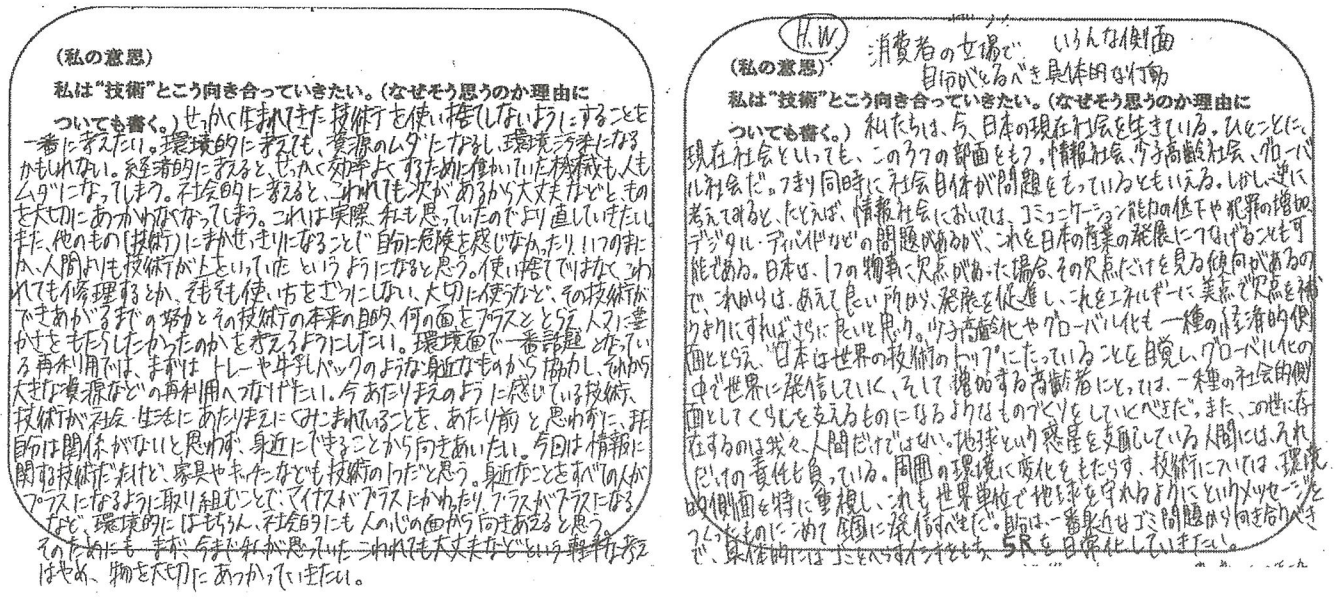 (私の意思)
私は"技術"とこう向き合っていきたい。(なぜそう思うのか理由に
ついても書く。)せっかく生まれてきた技術を使い捨てしないようにすることを
一番に考えたい。環境的に考えても、資源のムダになるし、環境汚染になる
かもしれない。経済的に考えると、せっかく効率よくするために働いていた機械も、人も
ムダになってしまう。社会的に考えると、こわれても次があるから大丈夫などと、もの
を大切にあつかわなくなってしまう。これは実際、私も思っていたのでより直していきたい。
また、他のもの(技術)にまかせっきりになることで自分に危険を感じなかったり、いつのまに
か、人間よりも技術が上をいっていたというようになると思う。使い捨てではなく、こわ
れても修理するとか、そもそも使い方をざつにしない、大切に使うなど、その技術が
できあがるまでの努力とその技術の本来の目的、何の面をプラスととらえ人々に豊
かさをもたらしたかったのかを考えるようにしたい。環境面で一番話題となってい
る再利用では、まずはトレーや牛乳パックのような身近なものから協力し、それから
大きな資源などの再利用へつなげたい。今あたりまえのように感じている技術、
技術が社会・生活にあたりまえにくみこまれていることを、あたり前と思わずに、また
自分は関係がないと思わず、身近にできることから向きあいたい。今回は情報に
関する技術だったけど、家具やキッチンなども技術の1つだと思う。身近なことをすべての人が
プラスになるように取り組むことで、マイナスがプラスにかわったり、プラスがプラスになる
など、環境的にはもちろん、社会的にも人の心の面から向きあえると思う。
そのためにも、まず、今まで私が思っていたこわれても大丈夫などという軽率な考え
はやめ、物を大切にあつかっていきたい。
H.W.
消費者の立場で、いろんな側面
自分がとるべき具体的な行動
(私の意思)
私は"技術"とこう向き合っていきたい。(なぜそう思うのか理由に
ついても書く。)私たちは、今、日本の現在社会を生きている。ひとことに、
現在社会といっても、この3つの部面をもつ。情報社会、少子高齢社会、グローバ
ル社会だ。つまり同時に社会自体が問題をもっているともいえる。しかし、逆に
考えてみると、たとえば、情報社会においては、コミュニケーション能力の低下や犯罪の増加、
デジタル・ディバイドなどの問題があるが、これを日本の産業の発展につなげることも可
能である。日本は、1つの物事に欠点があった場合、その欠点だけを見る傾向があるの
で、これからは、あえて良い所から、発展を促進し、これをエネルギーに美点で欠点を補
うようにすればさらに良いと思う。少子高齢化やグローバル化も一種の経済的側
面ととらえ、日本は世界の技術のトップにたっていることを自覚し、グローバル化の
中で世界に発信していく、そして増加する高齢者にとっては、一種の社会的側
面としてくらしを支えるものになるようなものづくりをしていくべきだ。また、この世に存
在するのは我々、人間だけではない。地球という惑星を支配している人間には、それ
だけの責任も負っている。周囲の環境に変化をもたらす、技術については、環境
的側面を特に重視し、これも世界単位で地球を守れるようにというメッセージを
つくったものにこめて全国に発信すべきだ。自分は一番身近なゴミ問題から向き合うべき
で、具体的にはゴミをへらす 5Rを日常化していきたい。